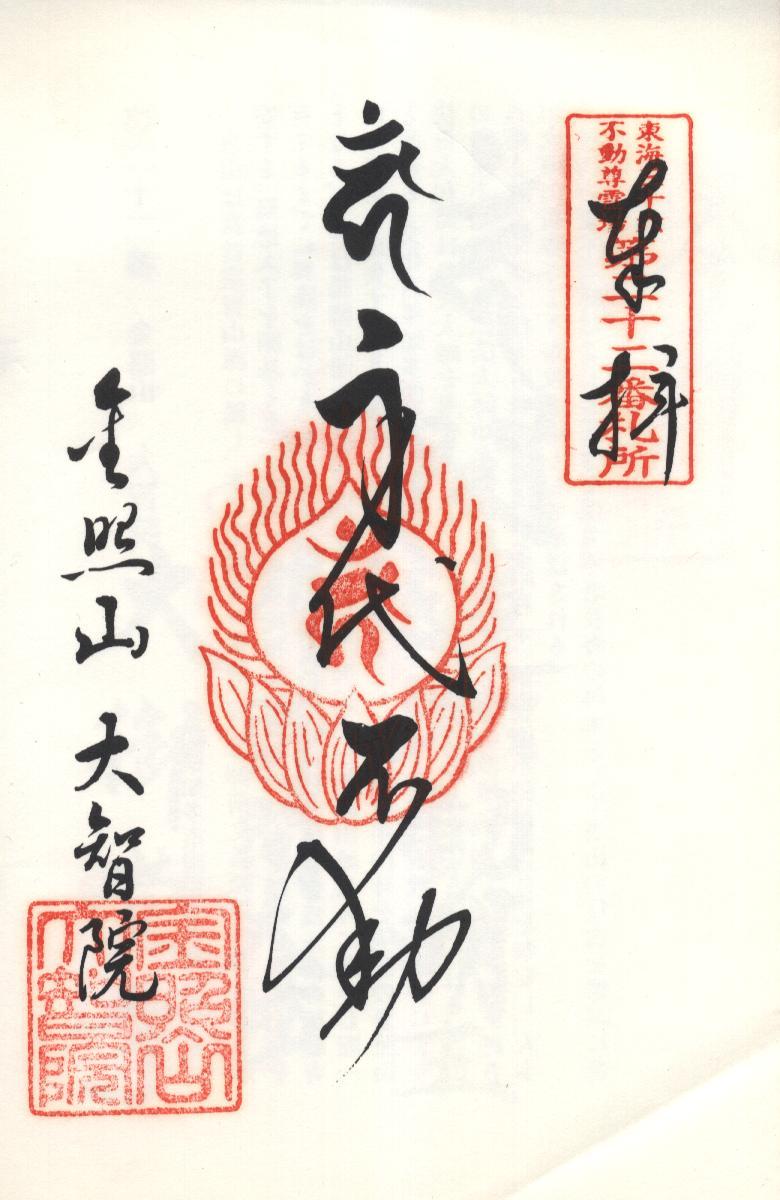 東海三十六
不動尊霊場
第二十二番札所
奉拝
身代不動
金照山 大智院
金照山
大智院